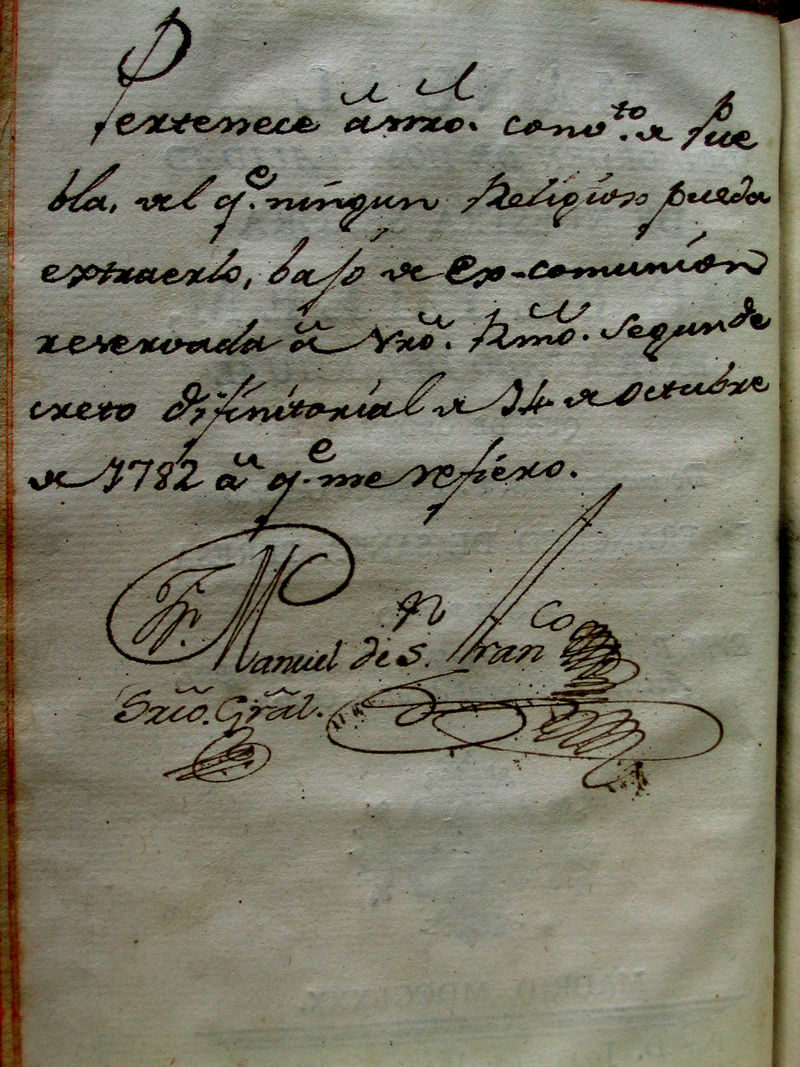 Pertenece à nr̃o. conv.to de Pue
bla, del q.e ningun Religioso pueda
extraerlo, bajo de Ex-comunion
reservada à Nr̃o. Rm̃o. segun de
creto difinitorial de 14 de Octubre
de 1782 à q.e me refiero.
Fr. Manuel de S.n Fran.co
Srio. Grãl.
MADRID. MDCCLXX.